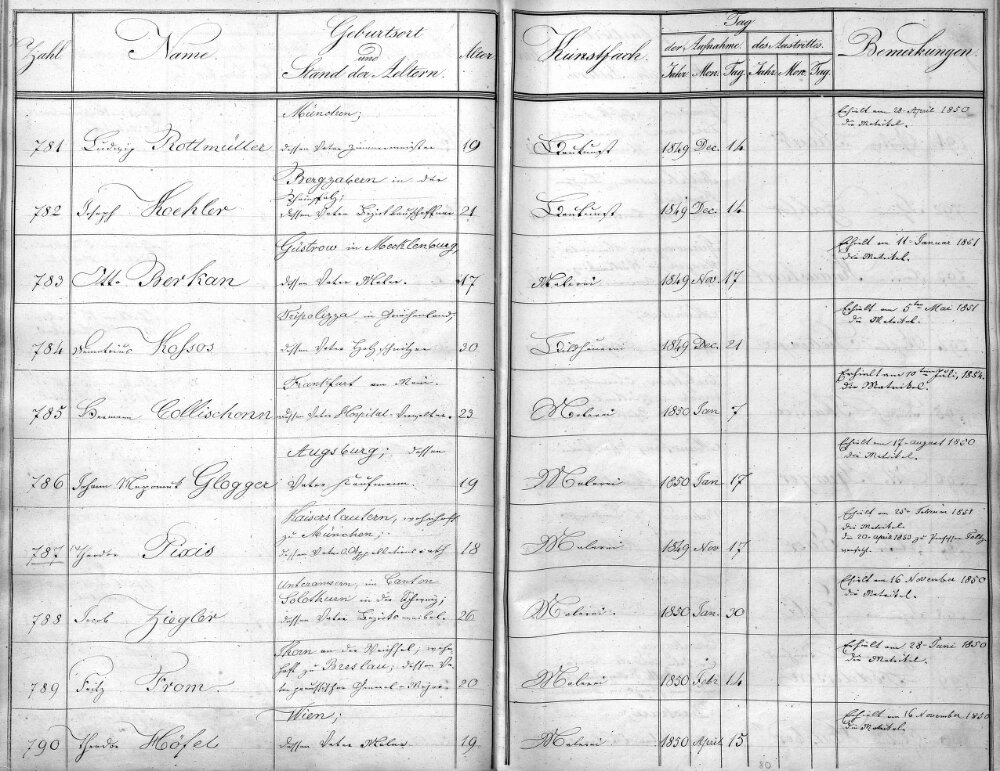 Zahl Name. Geburtsort und Stand der Aeltern. Alter Kunstfach. Tag Bemerkungen.
der Aufnahme. des Austrittes.
Jahr Mon. Tag Jahr Mon. Tag.
München;
781 Ludwig Rottmüller dessen Vater Zimmermeister 19 Baukunst 1849 Dec. 14 Erhielt am 28 April 1850
die Matrikel.
Bergzabern in der
Rheinpfalz;
782 Joseph Koehler dessen Vater 21 Baukunst 1849 Dec. 14
Güstrow in Mecklenburg,
783 Otto Berkan dessen Vater Maler. 17 Malerei 1849 Nov. 17 Erhielt am 11 Januar 1861
die Matrikel.
Tripolizza in Griechenland,
784 Demetrius Kossos dessen Vater Holzschnitzer 30 Bildhauerei 1849 Dec. 21 Erhielt am 5ten Mai 1851
die Matrikel.
Frankfurt am Main.
785 Hermann Collischonn dessen Vater Hospital-Verwalter. 23 Malerei 1850 Jan 7 Erhielt am 10ten Juli, 1854.
die Matrikel.
Augsburg; dessen
786 Johann Nepomuk Glogger Vater Kaufmann. 19 Malerei 1850 Jan 17 Erhielt am 17. August 1850
die Matrikel.
Kaiserslautern, wohnhaft
zu München;
787 Theodor Pixis dessen Vater Appellationsrath 18 Malerei 1849 Nov. 17 Erhielt am 25 Februar 1851
die Matrikel.
den 20. April 1853 zu Professor Foltz
versetzt.
Unteramsern, im Canton
Solothurn in der Schweiz;
788 Jacob Ziegler dessen Vater 26 Malerei 1850 Jan. 30 Erhielt am 16 November 1850
die Matrikel.
Thorn an der Weichsel, wohn-
haft zu Breslau; dessen Va-
789 Fritz From. ter preussischer General-Major. 20 Malerei 1850 Febr 14 Erhielt am 28. Juni 1850
die Matrikel.
Wien;
790 Theodor Höfel dessen Vater Maler 19. Malerei 1850 April 15 Erhielt am 16 November 1850
die Matrikel.
80